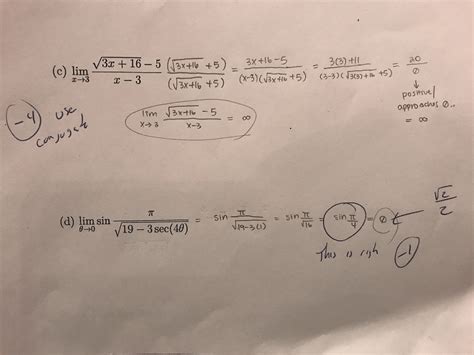 (c) lim x→3 (√(3x + 16) − 5)/(x − 3) (√(3x+16) + 5)/(√(3x+16) + 5) = (3x+16 −5)/((x−3)(√(3x+16) +5)) = (3(3)+11)/((3−3)(√(3(3)+16) +5)) = 20/0
↓
positive/
approaches 0..
= ∞
−4 use
conjugate
lim x→3 (√(3x+16) −5)/(x−3) = ∞
(d) lim θ→0 sin π/√(19 − 3 sec(4θ)) = sin π/√(19−3(1)) = sin π/√16 = sin π/4 = 0 ← √2/2
This is right −1